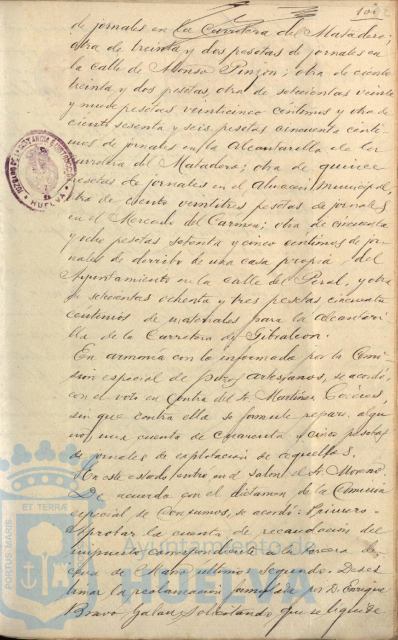 101
de jornales en la Carretera del Matadero;
otra de treinta y dos pesetas de jornales en
la calle de Alonso Pinzon; otra de ciento
treinta y dos pesetas, otra de setecientas veinte
y nueve pesetas veinticinco centimos y otra de
ciento sesenta y seis pesetas cincuenta centi-
mos de jornales en la Alcantarilla de la
carretera del Matadero; otra de quince
pesetas de jornales en el Almacen Municipal,
otra de ciento veintitres pesetas de jornales
en el Mercado del Carmen; otra de cincuenta
y ocho pesetas setenta y cinco centimos de jor-
nales de derribo de una casa propia del
Ayuntamiento en la calle del Peral, y otra
de setecientas ochenta y tres pesetas cincuenta
centimos de materiales para la alcantari-
lla de la Carretera de Gibraleon.
En armonia con lo informado por la Comi-
sion especial de pozos artesianos, se acordó,
con el voto en contra del Sr. Martinez
sin que contra ella se formule reparo algu-
no, una cuenta de cuarenta y cinco pesetas
de jornales de explotacion de aquellos.
En este estado entró en el salon el Sr. Moreno.
De acuerdo con el dictamen de la Comision
especial de Consumos, se acordó: Primero.
Aprobar la cuenta de recaudacion del
impuesto correspondiente a la tercera de-
cena de Marzo ultimo. Segundo. Deses-
timar la reclamacion formulada por D. Enrique
Bravo Galan, solicitando que se liquide
HUELVA
PORTUS MARIS
ET TERRAE
Ayuntamiento de
HUELVA